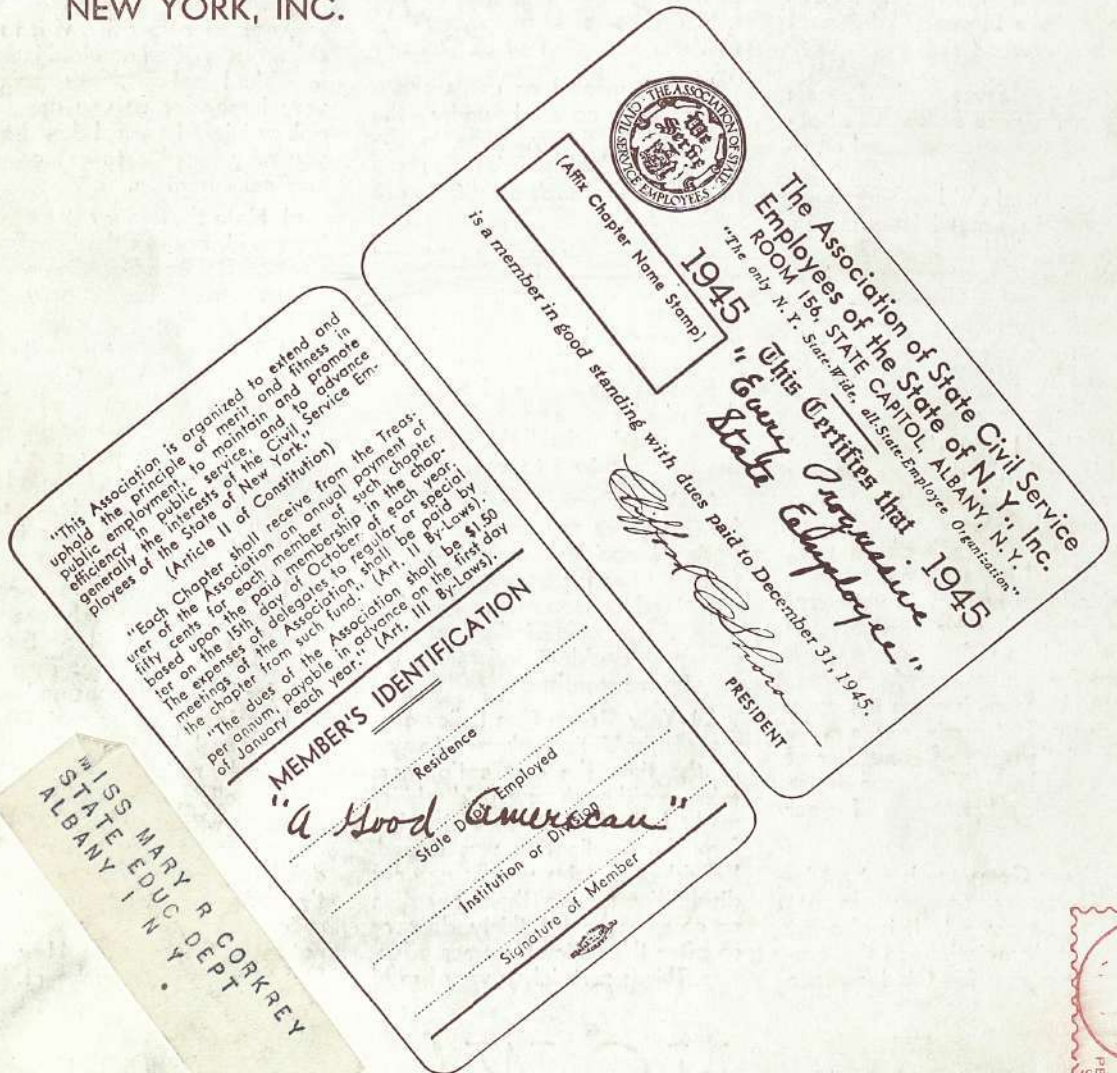 NEW YORK, INC.
THE ASSOCIATION OF STATE CIVIL SERVICE EMPLOYEES
We
Serve
The Association of State Civil Service
Employees of the State of N. Y., Inc.
ROOM 156, STATE CAPITOL, ALBANY, N. Y.
"The only N. Y. State-Wide, all-State-Employee Organization".
1945 This Certifies that 1945
(Affix Chapter Name Stamp)
"Every Progressive
State Employee."
is a member in good standing with dues paid to December 31, 1945.
PRESIDENT
"This Association is organized to extend and
uphold the principle of merit and fitness in
public employment, to maintain and promote
efficiency in public service, and to advance
generally the interests of the Civil Service Em-
ployees of the State of New York."
(Article II of Constitution)
"Each Chapter shall receive from the Treas-
urer of the Association an annual payment of
fifty cents for each member of such chapter
based upon the paid membership in the chap-
ter on the 15th day of October of each year.
The expenses of delegates to regular or special
meetings of the Association, shall be paid by
the chapter from such fund." (Art. II By-Laws).
"The dues of the Association shall be $1.50
per annum, payable in advance on the first day
of January each year." (Art. III By-Laws).
MEMBER'S IDENTIFICATION
Residence
"A Good American"
State Dept. Employed
Institution or Division
Signature of Member
MISS MARY R CORKREY
STATE EDUC DEPT
ALBANY 1 N Y .